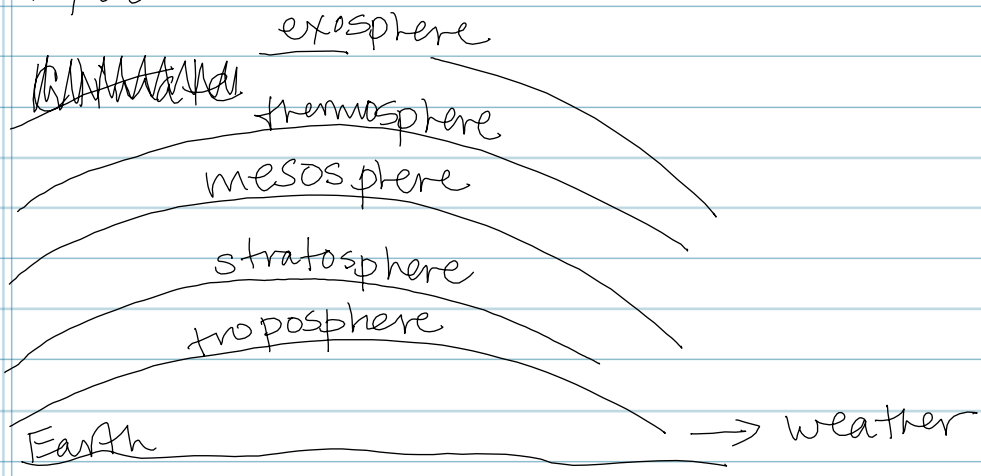 exosphere
thermosphere
mesosphere
stratosphere
troposphere
→ weather
Earth